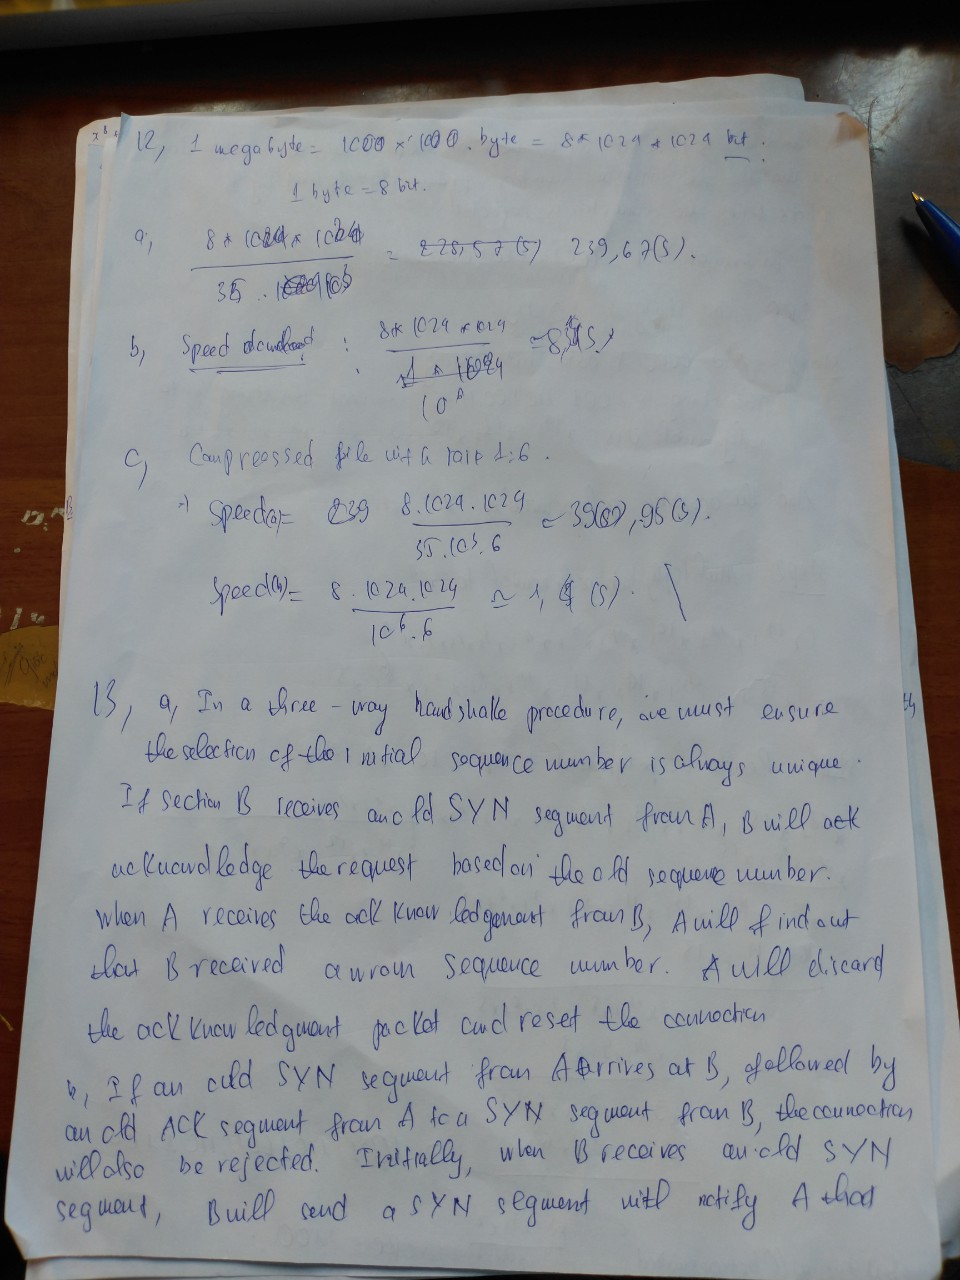 12, 1 megabyte = 1000 × 1000 . byte = 8 * 1024 * 1024 bit .
1 byte = 8 bit.
a, 8 * 1024 * 1024 / 35 . 10^3 = 228,57 (s) 239,67 (s).
b, Speed download : 8 * 1024 * 1024 / 10^6 ≈ 8, (s)
c, Compreossed file with ratio 1:6 .
Speed(a) = 239 8.1024.1024 / 35.10^3.6 ≈ 39,95 (s).
Speed(b) = 8.1024.1024 / 10^6.6 ≈ 1,4 (s).
13, a, In a three - way handshake procedure, we must ensure
the selection of the initial sequence number is always unique .
If section B receives an old SYN segment from A, B will ack
acknowledge the request based on the old sequence number.
When A receives the acknowledgement from B, A will find out
that B received a wrom sequence number. A will discard
the acknowledgment packet and reset the connection
b, If an old SYN segment from A arrives at B, followed by
an old ACK segment from A to a SYN segment from B, the connection
will also be rejected. Initially, when B receives an old SYN
segment, B will send a SYN segment with notify A that